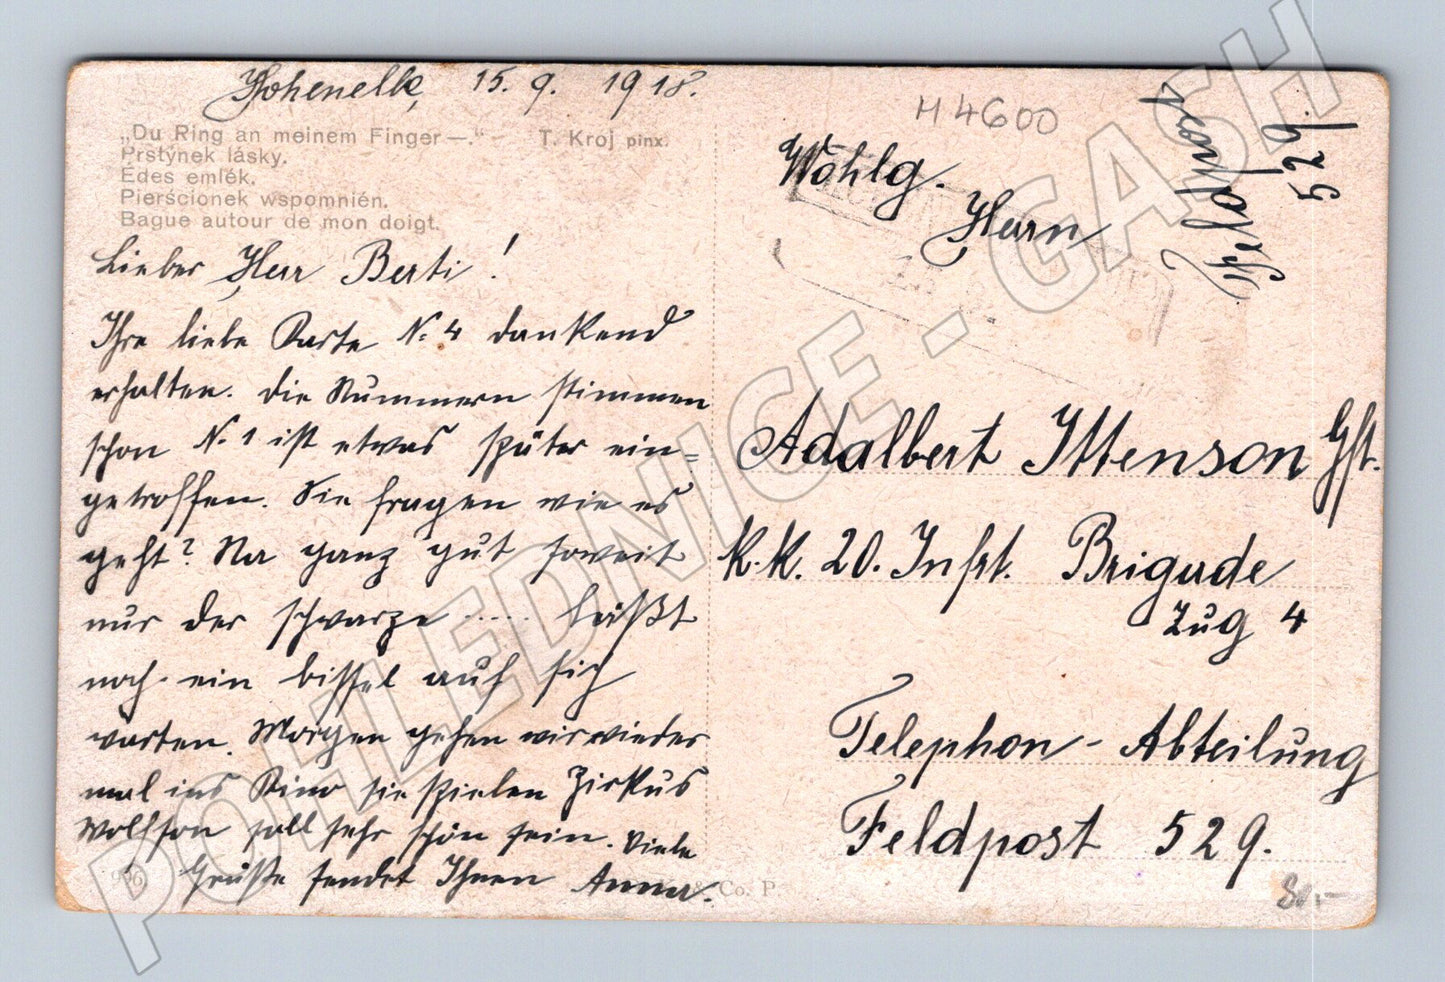 Hohenelbe, 15. 9. 1918.
„Du Ring an meinem Finger —." — T. Kroj pinx.
Prstýnek lásky.
Édes emlék.
Pierścionek wspomnień.
Bague autour de mon doigt.
Lieber Herr Berti!
Ihre liebe Karte N. 4 dankend
erhalten. Die Nummern stimmen
schon N. 1 ist etwas später ein=
getroffen. Sie fragen wie es
geht? Na ganz gut soweit
nur der schwarze ..... läßt
noch ein bissel auf sich
warten. Morgen gehen wir wieder
mal ins Kino sie spielen Zirkus
Wolfson soll sehr schön sein. Viele
Grüße sendet Ihnen Anna.
& Co. P
H 4600
Feldpost
529.
Wohlg.
Herrn
Adalbert Ittenson Gft.
K.K. 20. Infrt. Brigade
Zug 4
Telephon - Abteilung
Feldpost 529.
80.-
POHLEDNICE - GASH